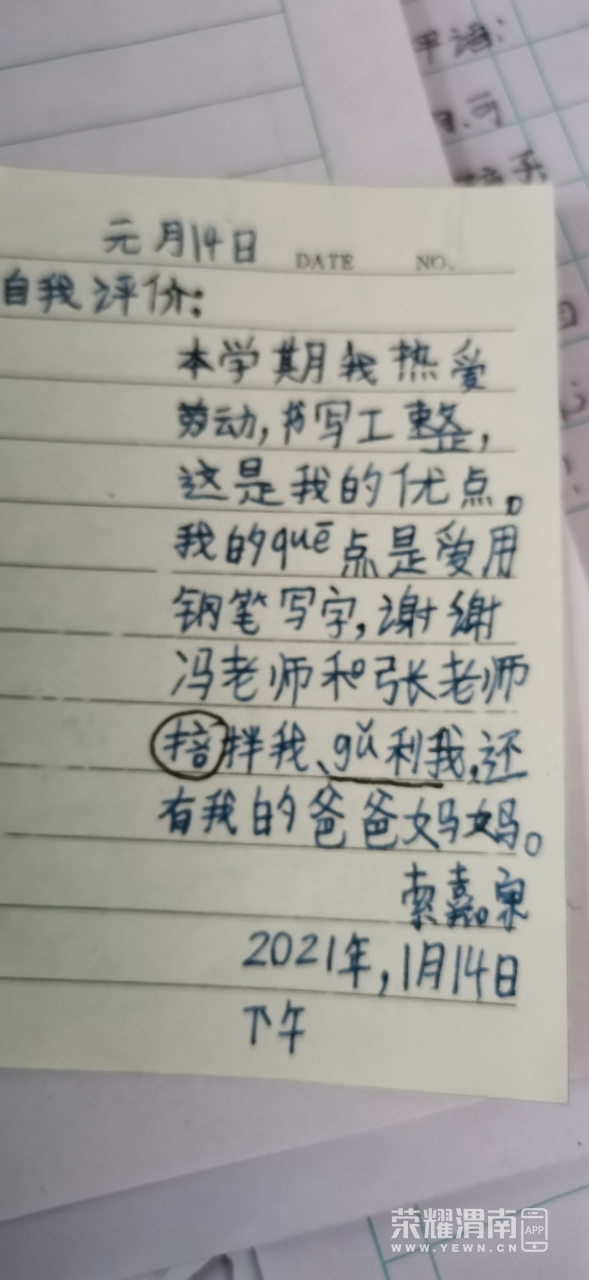 平语:
元月14日 DATE NO.
自我评价:
本学期我热爱
劳动,书写工整,
这是我的优点。
我的quē点是爱用
钢笔写字,谢谢
冯老师和张老师
掊拌我、gǔ利我,还
有我的爸爸妈妈。
索嘉泉
2021年,1月14日
下午
荣耀渭南 APP
WWW.YEWN.CN